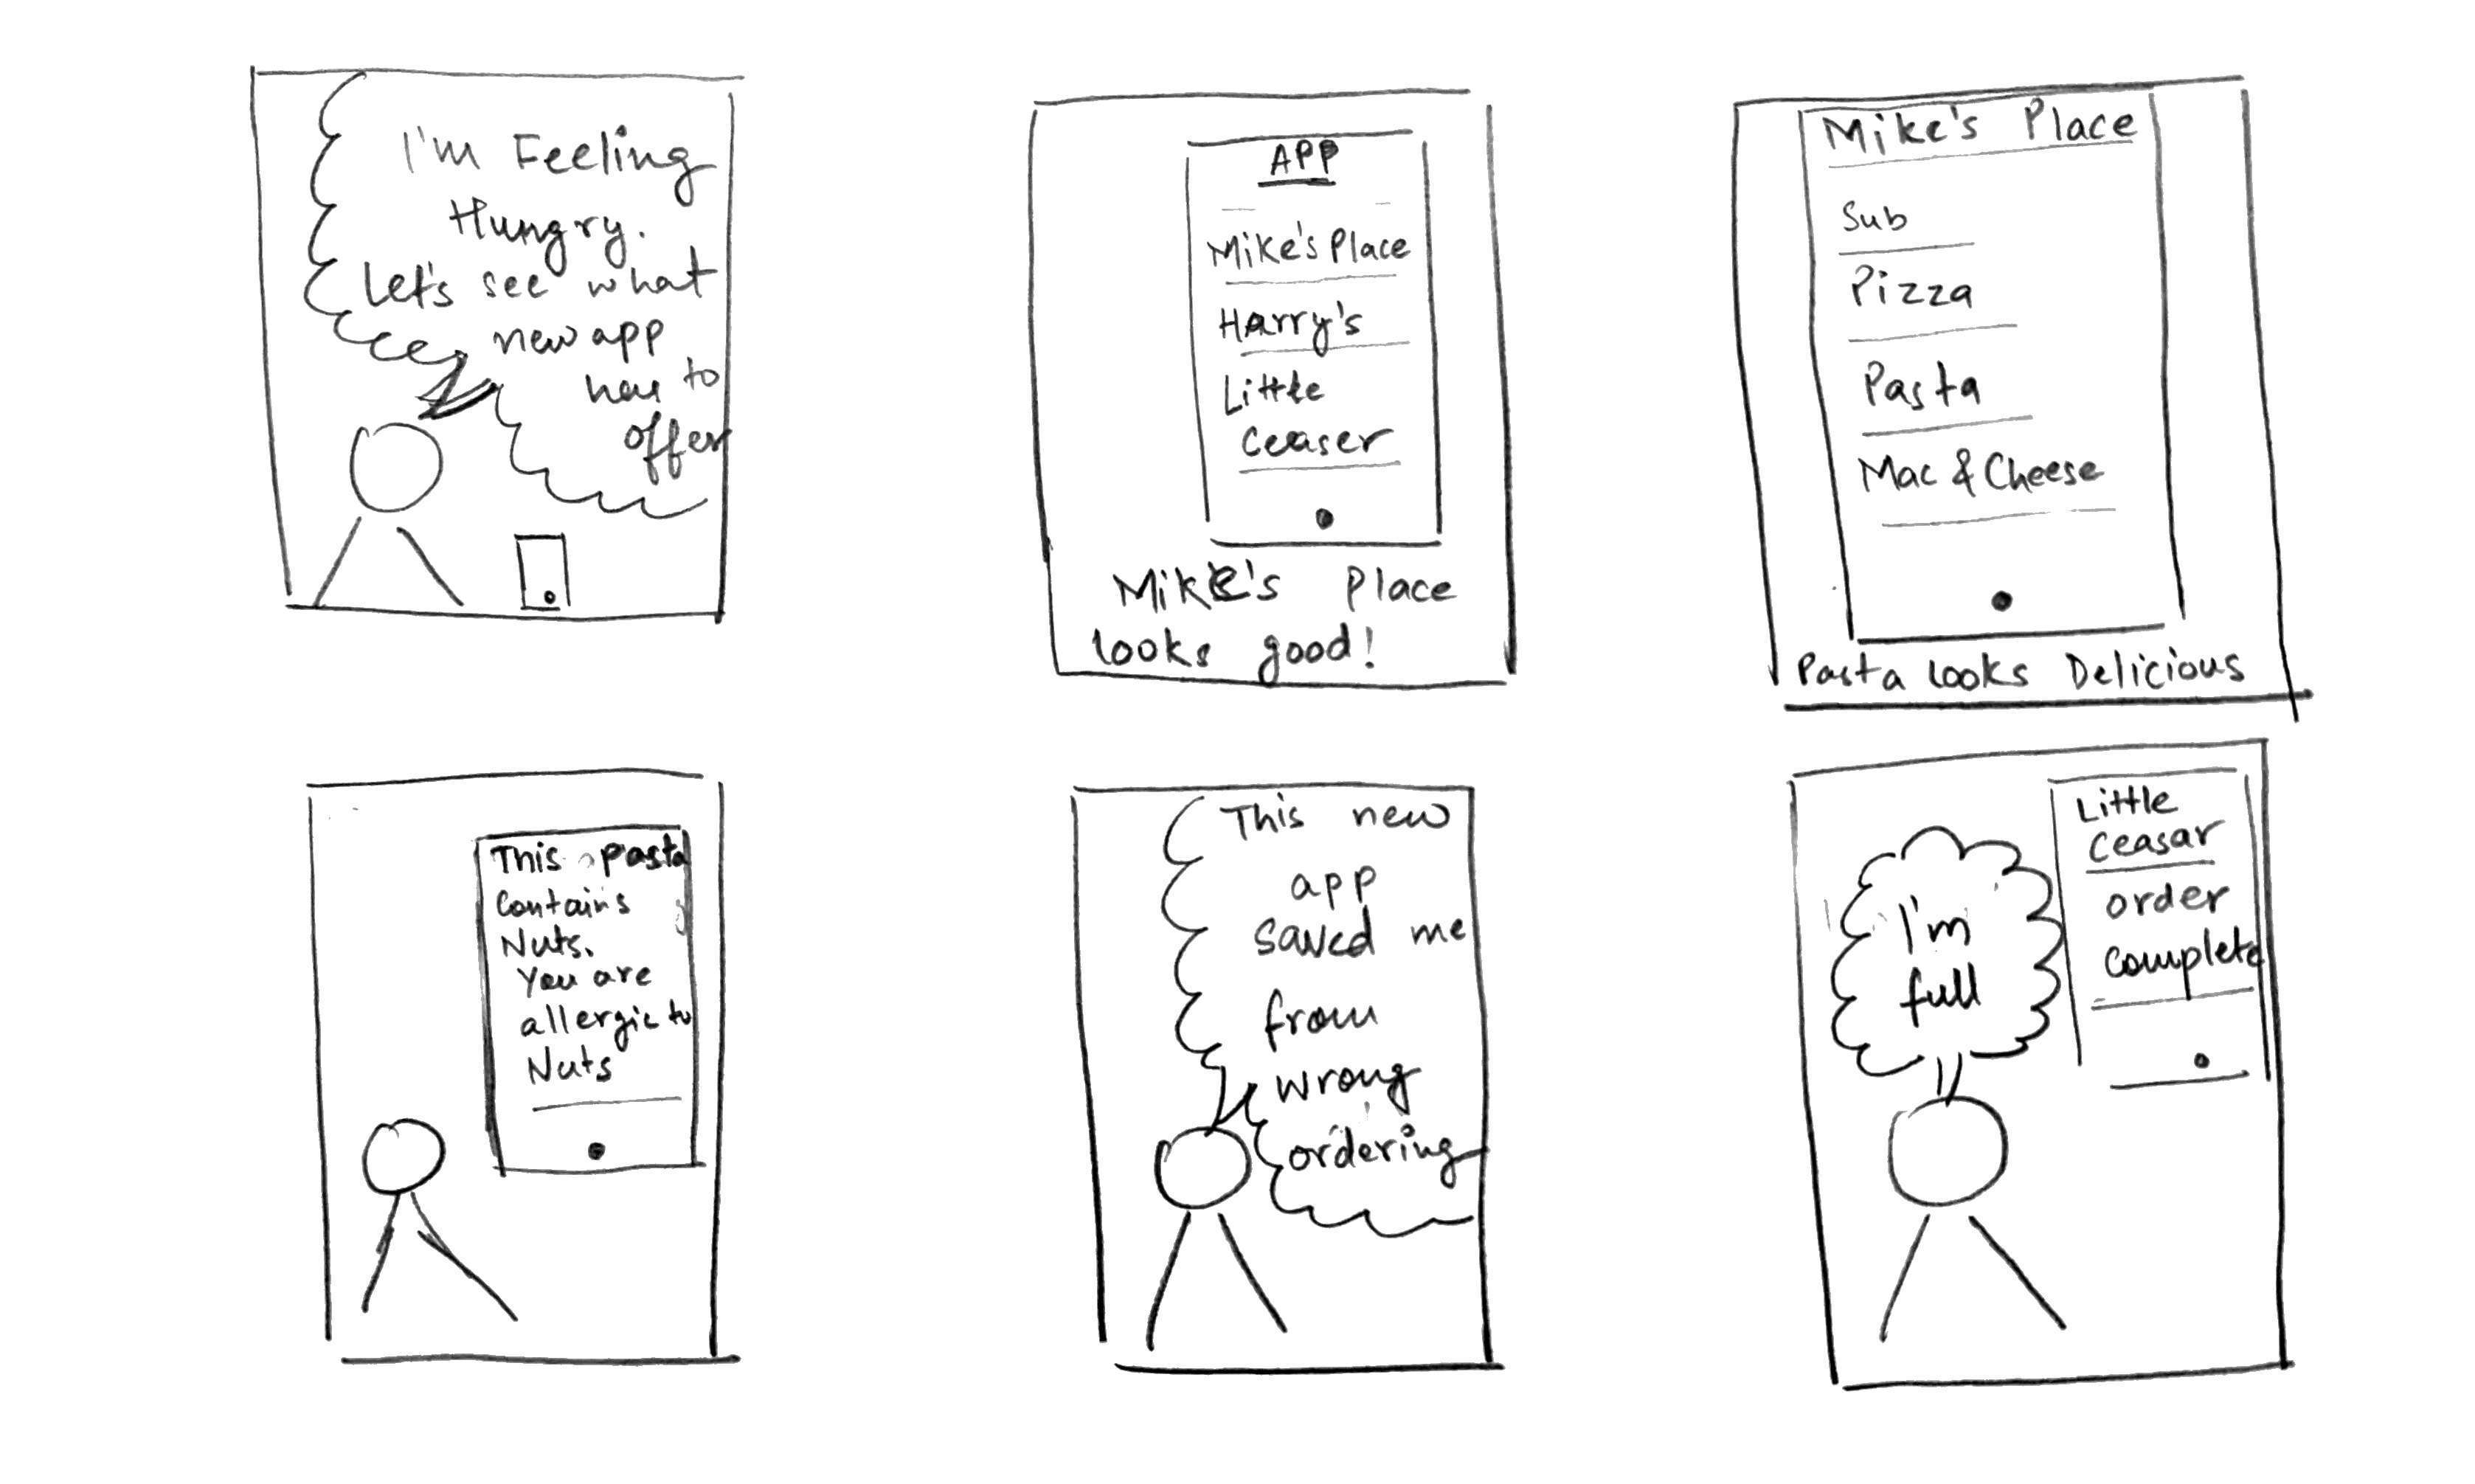 I'm Feeling
Hungry.
Let's see what
new app
has to
offer
APP
Mike's Place
Harry's
Little
Ceaser
Mike's Place
looks good!
Mike's Place
Sub
Pizza
Pasta
Mac & Cheese
Pasta looks Delicious
This pasta
Contains
Nuts.
You are
allergic to
Nuts
This new
app
saved me
from
wrong
ordering
I'm
full
Little
Ceasar
order
complete